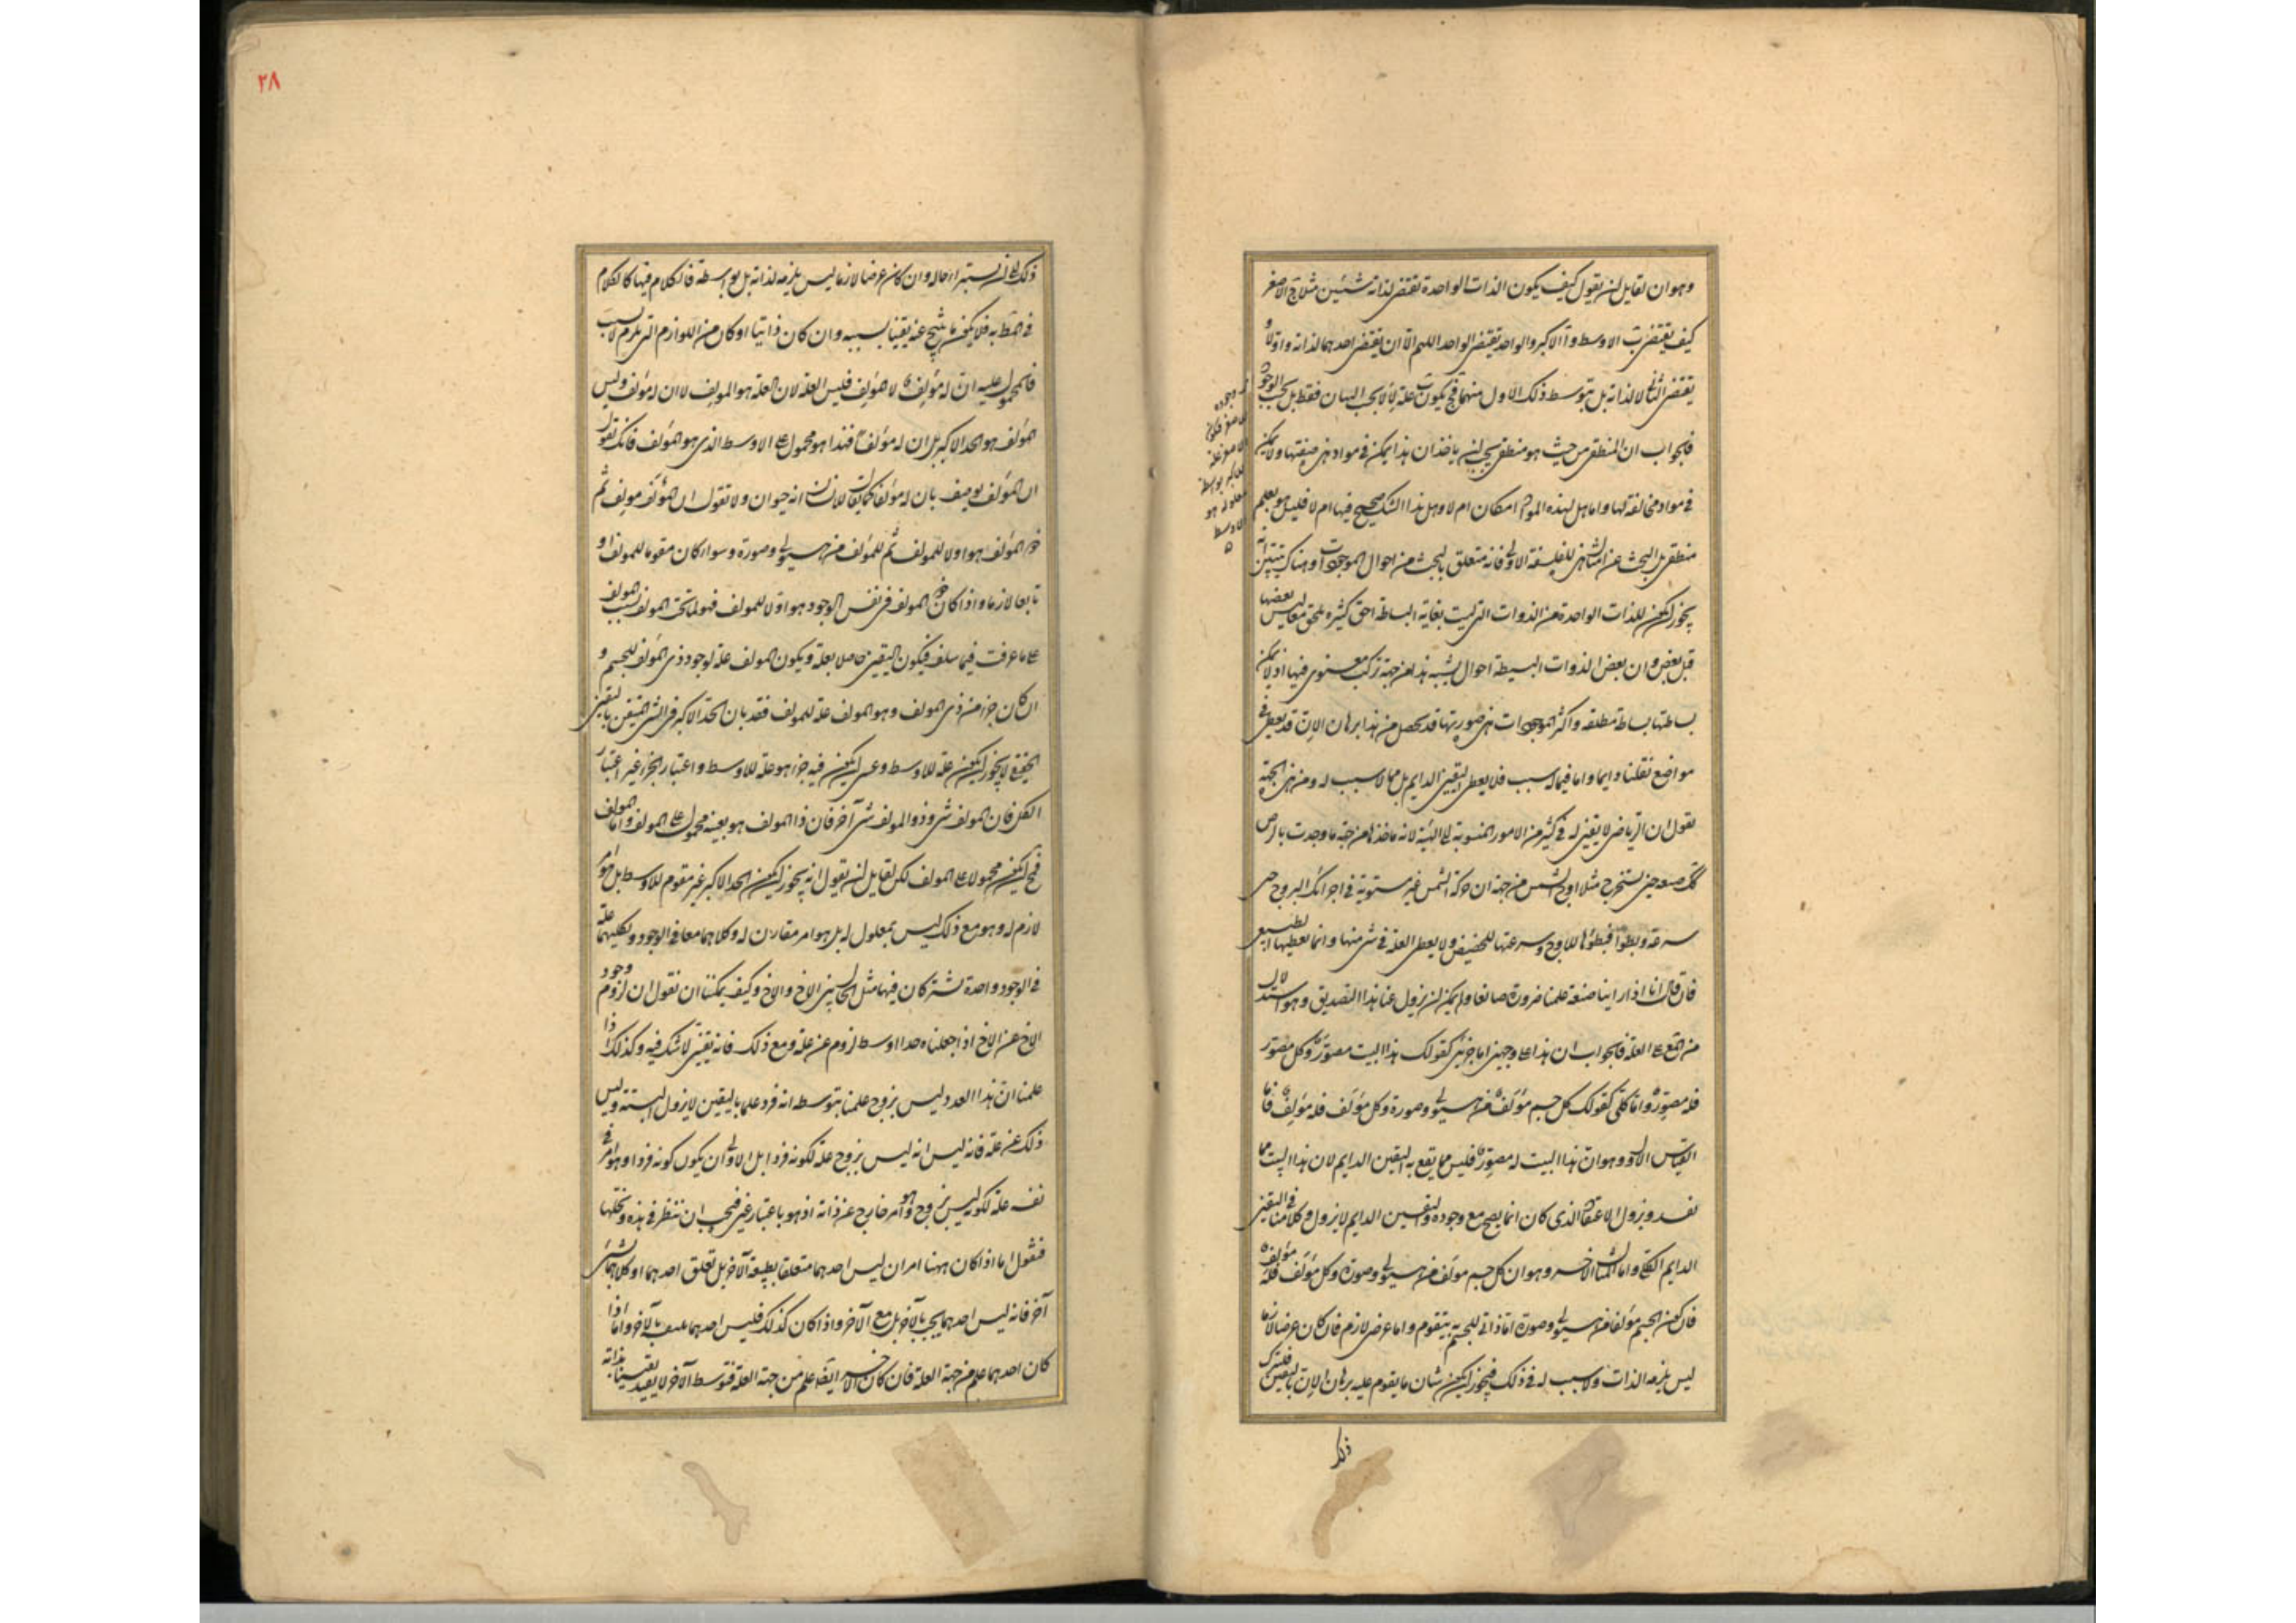 وهو ان لقايل ان يقول كيف يكون الذات الواحدة تقتضى لذاته شيئين مثلا ج الاصغر
كيف يقتضى ب الاوسط و ا الاكبر والواحد يقتضى الواحد اللهم الا ان يقتضى احدهما لذاته واولا و
يقتضى الثانى لا لذاته بل بتوسط ذلك الاول منهما فح يكون ب علة لا لا بحسب البيان فقط بل بحسب الوجود
فالجواب ان المنطقى من حيث هو منطقى يجب ان ياخذ ان هذا يمكن فى مواد هى صفتها ولا يمكن
فى مواد مخالفة لها واما هل لهذه المواد امكان ام لا وهل هذا الشك صحيح فيها ام لا فليس هو بعلم
منطقى بل البحث عن امثال هذه للفلسفة الاولى فانه متعلق بالبحث عن احوال الموجودات وهناك يتبين انه
يجوز ان يكون للذات الواحدة من الذوات التى ليست بغاية البساطة لواحق كثيرة تلحق معا ليس بعضها
قبل بعض وان بعض الذوات البسيطة احوال يشبه هذا من جهة تركب معنوى فيها اذ لا يمكن
بساطتها بساطة مطلقة واكثر الموجودات هى صورتها قد تحصل من هذا برهان الان قد يعطى فى
مواضع يقينا دايما واما فيما له سبب فلا يعطى اليقين الدايم بل مما لا سبب له ومن هذه الجهة
نقول ان الرياضى لا يقين له فى كثير من الامور المنسوبة الى الهيئة لانه ماخذها من جهة ما وجدت بالرصد
تلك صعد حين يستخرج مثلا اوج الشمس من جهة ان حركة الشمس غير مستوية فى اجزاء فلك البروج حين
سرعة وبطؤا فبطؤها للاوج وسرعتها للحضيض ولا يعطى العلة فى شئ منها وانما يعطيها الطبيعى
فان قال انا اذا راينا صنعة علمنا ضرورة صانعا ولم يمكن ان يزول عنا هذا التصديق وهو استدلال
من المع على العلة فالجواب ان هذا على وجهين اما جزئى كقولك هذا البيت مصور وكل مصور
فله مصور واما كلى كقولك كل جسم مؤلف من هيولى وصورة وكل مؤلف فله مؤلف فاما
القياس الاول وهو ان هذا البيت له مصور فليس مما يقع به اليقين الدايم لان هذا البيت مما
يفسد ويزول الاعتقاد الذى كان انما يصح مع وجوده واليقين الدايم لا يزول وكلامنا فى اليقين
الدايم الكلى واما المثال الاخر وهو ان كل جسم مولف من هيولى وصورة وكل مؤلف فله مؤلف
فان كون الجسم مؤلفا من هيولى وصورة اما ذاتى للجسم به يتقوم واما عرضى لازم فان كان عرضا لازما
ليس يلزمه الذات ولا سبب له فى ذلك فيجوز ان يكون شان ما يقوم عليه برهان الان باليقين فليترك
ذلك
ذلك الى ان يستبرا حاله وان كان عرضا لازما ليس يلزمه لذاته بل بواسطة فالكلام فيها كالكلام
فى المط به فلا يكون ما ينتج عنه يقينا لسببه وان كان ذاتيا او كان من اللوازم التى يلزم لا بسبب
فالمحمول عليه ان له مؤلفا لا المؤلف فليس العلة لان العلة هو المولف لا ان له مؤلف وليس
المؤلف هو الحد الاكبر بل ان له مؤلفا فهذا هو محمول على الاوسط الذى هو المؤلف فانك تقول
ان المؤلف يوصف بان له مؤلفا كما يقال للانسان انه حيوان ولا تقول ان المؤلف مولف ثم
المؤلف هو اولا للمولف ثم للمؤلف من هيولى وصورة وسوا كان مقوما للمولف او
تابعا لازما واذا كان ذو المولف فى نفس الوجود هو اولا للمولف فهو لما تحت المولف بسبب المولف
على ما عرفت فيما سلف فيكون اليقين حاصلا بعلة ويكون المولف علة لوجود ذى المؤلف للجسم و
ان كان جزء من ذى المولف وهو المولف علة للمولف فقد بان الحد الاكبر فى الشى المتيقن باليقين
الحقيقى لا يجوز ان يكون علة للاوسط وعسى ان يكون فيه جزء هو علة للاوسط واعتبار الجزء غير اعتبار
الكل فان المولف شى وذو المولف شى آخر فان ذا المولف هو بعينه محمول على المولف واما المولف
فمح ان يكون محمولا على المولف لكن لقايل ان يقول انه يجوز ان يكون الحد الاكبر غير مقوم للاوسط بل هو امر
لازم له وهو مع ذلك ليس بمعلول له بل هو امر مقارن له وكلاهما معا فى الوجود ولكليهما علة
فى الوجود واحدة تشتركان فيها مثل حال الاخ والاخ وكيف يمكننا ان نقول ان لزوم وجود
الاخ عن الاخ اذا جعلناه حدا اوسط لزوم عن علة ومع ذلك فانه يقين لا شك فيه وكذلك اذا
علمنا ان هذا العدد ليس بزوج علمنا بتوسطه انه فرد علما باليقين لا يزول البتة وليس
ذلك عن علة فانه ليس انه ليس بزوج علة لكونه فردا بل الاولى ان يكون كونه فردا وهو امر فى
نفسه علة لكونه ليس بزوج وهو امر خارج عن ذاته اذ هو باعتبار غير فيجب ان ننظر فى هذه ونحلها
فنقول اما اذا كان ههنا امران ليس احدهما متعلقا بطبيعة الآخر بل تعلق احدهما او كلاهما بشئ
آخر فانه ليس احدهما يجب بالآخر بل مع الآخر واذا كان كذلك فليس احدهما بالآخر واما اذا
كان احدهما علم من جهة العلة فان كان الآخر ايضا علم من جهة العلة فتوسط الآخر لا يفيد يقينا بذاته
٢٨